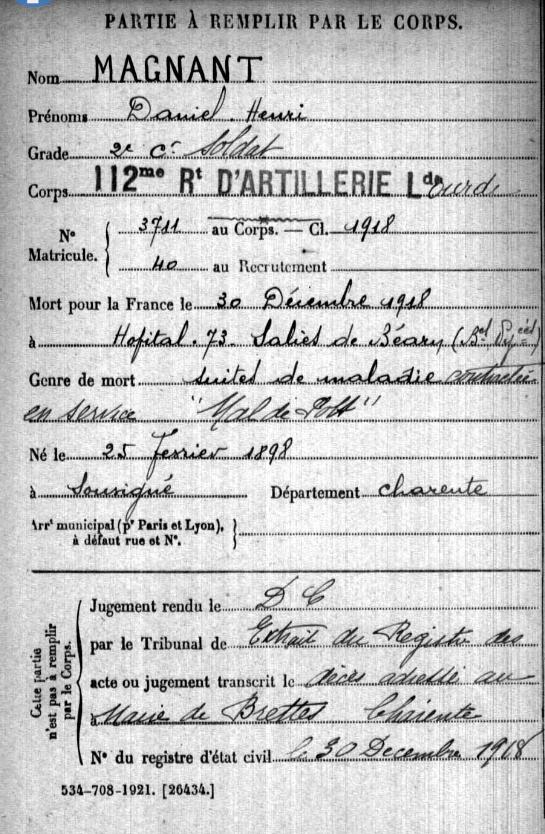 PARTIE À REMPLIR PAR LE CORPS.
Nom MAGNANT
Prénoms Daniel Henri
Grade 2e Cl Soldat
Corps 112me Rt D'ARTILLERIE Lde Lourde
N° Matricule. 3711 au Corps. — Cl. 1918
40 au Recrutement
Mort pour la France le 30 Décembre 1918
à Hopital 73 Salies de Béarn (Bses Pyrées)
Genre de mort suites de maladie contractée
en service "Mal de Pott"
Né le 25 fevrier 1898
à Souvigné Département charente
Arrt municipal (pr Paris et Lyon),
à défaut rue et N°.
Cette partie n'est pas à remplir par le Corps.
Jugement rendu le D C
par le Tribunal de Extrait du Registre des
acte ou jugement transcrit le décès adressé au
à Maire de Brettes Charente
N° du registre d'état civil le 30 Decembre 1918
534-708-1921. [26434.]